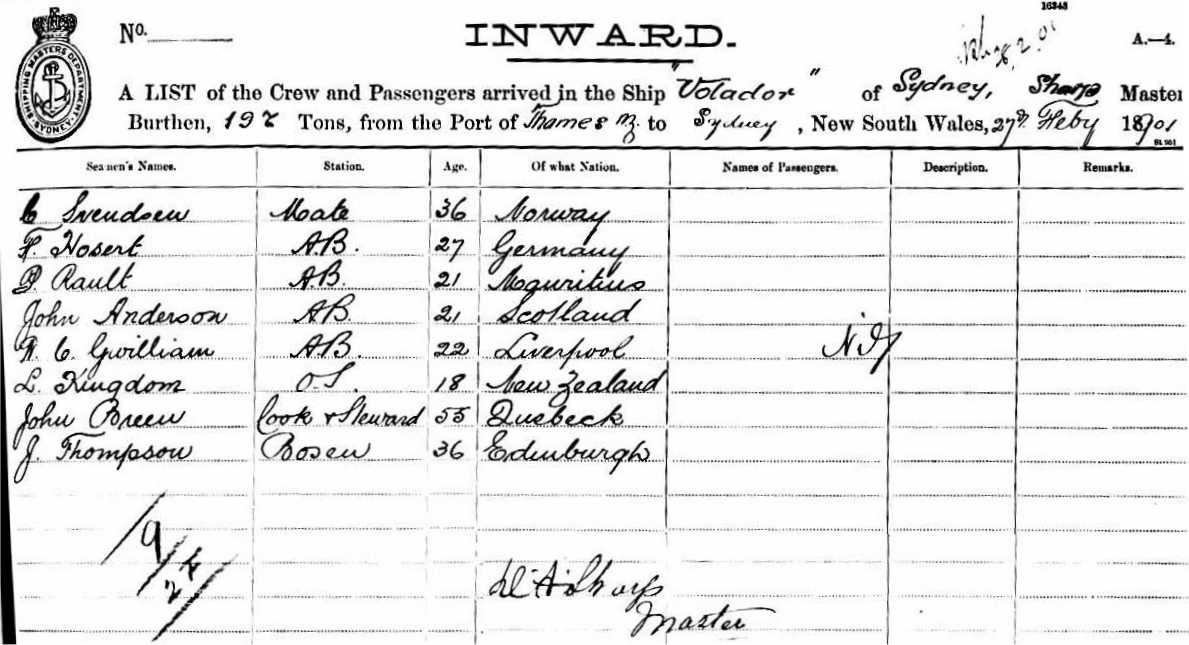 16348
No.
INWARD.
A.—4.
SHIPPING MASTERS DEPARTMENT SYDNEY
A LIST of the Crew and Passengers arrived in the Ship "Volador" of Sydney, Sharp Master
Burthen, 197 Tons, from the Port of Thames NZ to Sydney, New South Wales, 27th Feby 1901
Seamen's Names. Station. Age. Of what Nation. Names of Passengers. Description. Remarks.
C Svendsen Mate 36 Norway
F. Hosert A.B. 27 Germany
P. Rault A.B. 21 Mauritius
John Anderson A.B. 21 Scotland
C. Gwilliam A.B. 22 Liverpool Nil
L. Kingdom O.S. 18 New Zealand
John Breen Cook & Steward 55 Quebeck
J. Thompson Bosen 36 Edinburgh
Sharp
Master